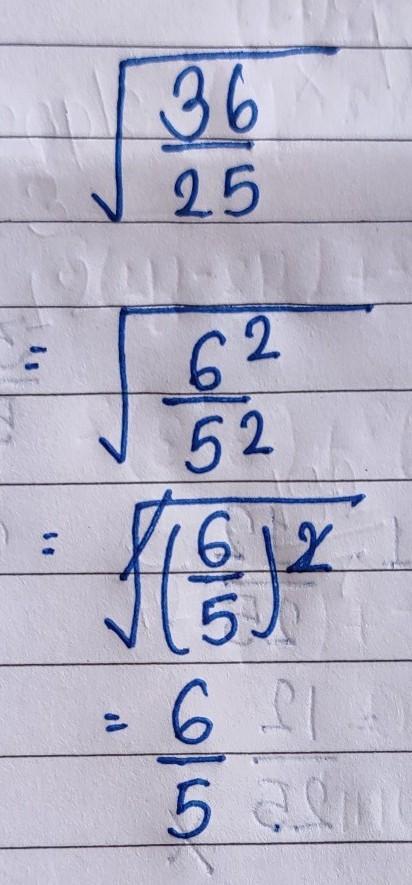 √(36/25)
= √(6²/5²)
= √((6/5)²)
= 6/5